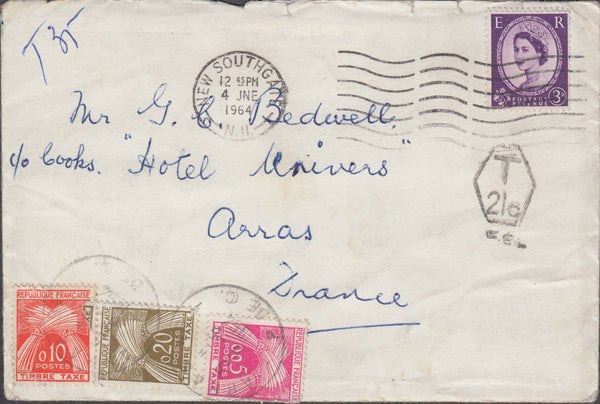 T 35
NEW SOUTHGATE
12 45PM
4 JNE
1964
N.11.
E R
POSTAGE
REVENUE
3D
T
21d
Mr G. R Bedwell,
c/o Cooks. "Hotel Univers"
Arras
France
REPUBLIQUE FRANÇAISE
0,10
POSTES
TIMBRE TAXE
REPUBLIQUE FRANÇAISE
0,20
POSTES
TIMBRE TAXE
REPUBLIQUE FRANÇAISE
0,05
POSTES
TIMBRE TAXE